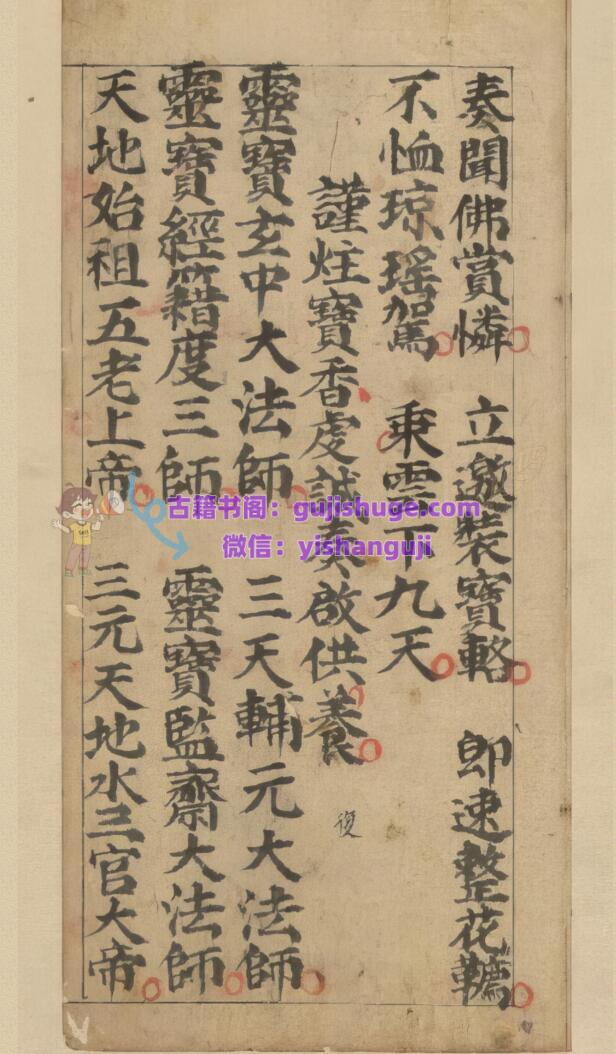 奏聞佛賞憐 立邀裝寶輅 即速整花韉
不恤琼瑤駕 乘雲下九天
謹炷寶香虔誠奏啟供養
復
靈寶玄中大法師 三天輔元大法師
靈寶經籍度三師 靈寶監齋大法師
天地始祖五老上帝 三元天地水三官大帝
古籍书阁：gujishuge.com
微信：yishanguji